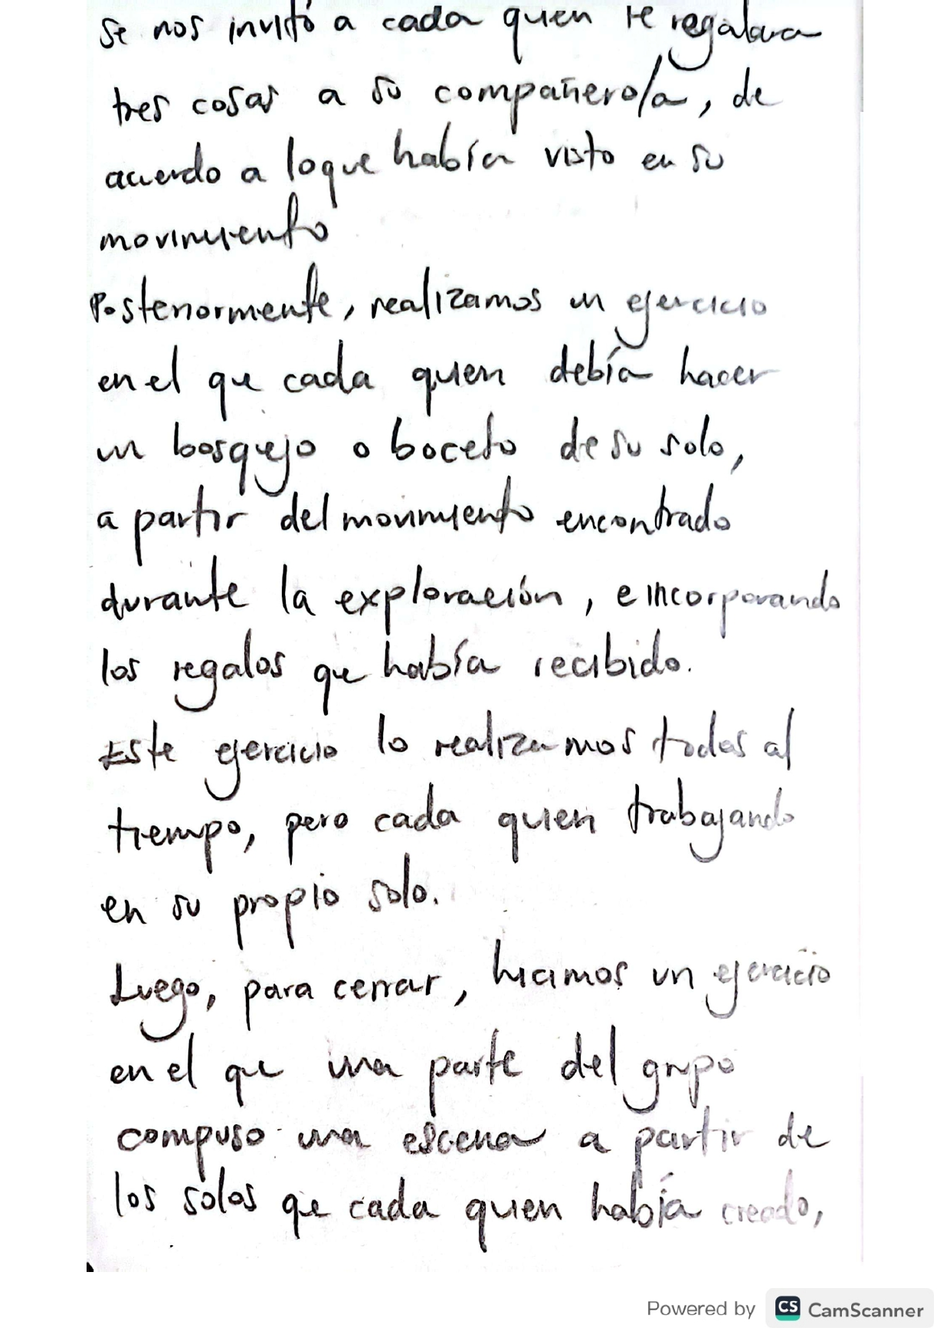 se nos invitó a cada quien le regalara
tres cosas a su compañero/a, de
acuerdo a lo que había visto en su
movimiento
Posteriormente, realizamos un ejercicio
en el que cada quien debía hacer
un bosquejo o boceto de su solo,
a partir del movimiento encontrado
durante la exploración, e incorporando
los regalos que había recibido.
Este ejercicio lo realizamos todas al
tiempo, pero cada quien trabajando
en su propio solo.
Luego, para cerrar, hicimos un ejercicio
en el que una parte del grupo
compuso una escena a partir de
los solos que cada quien había creado,
Powered by CS CamScanner